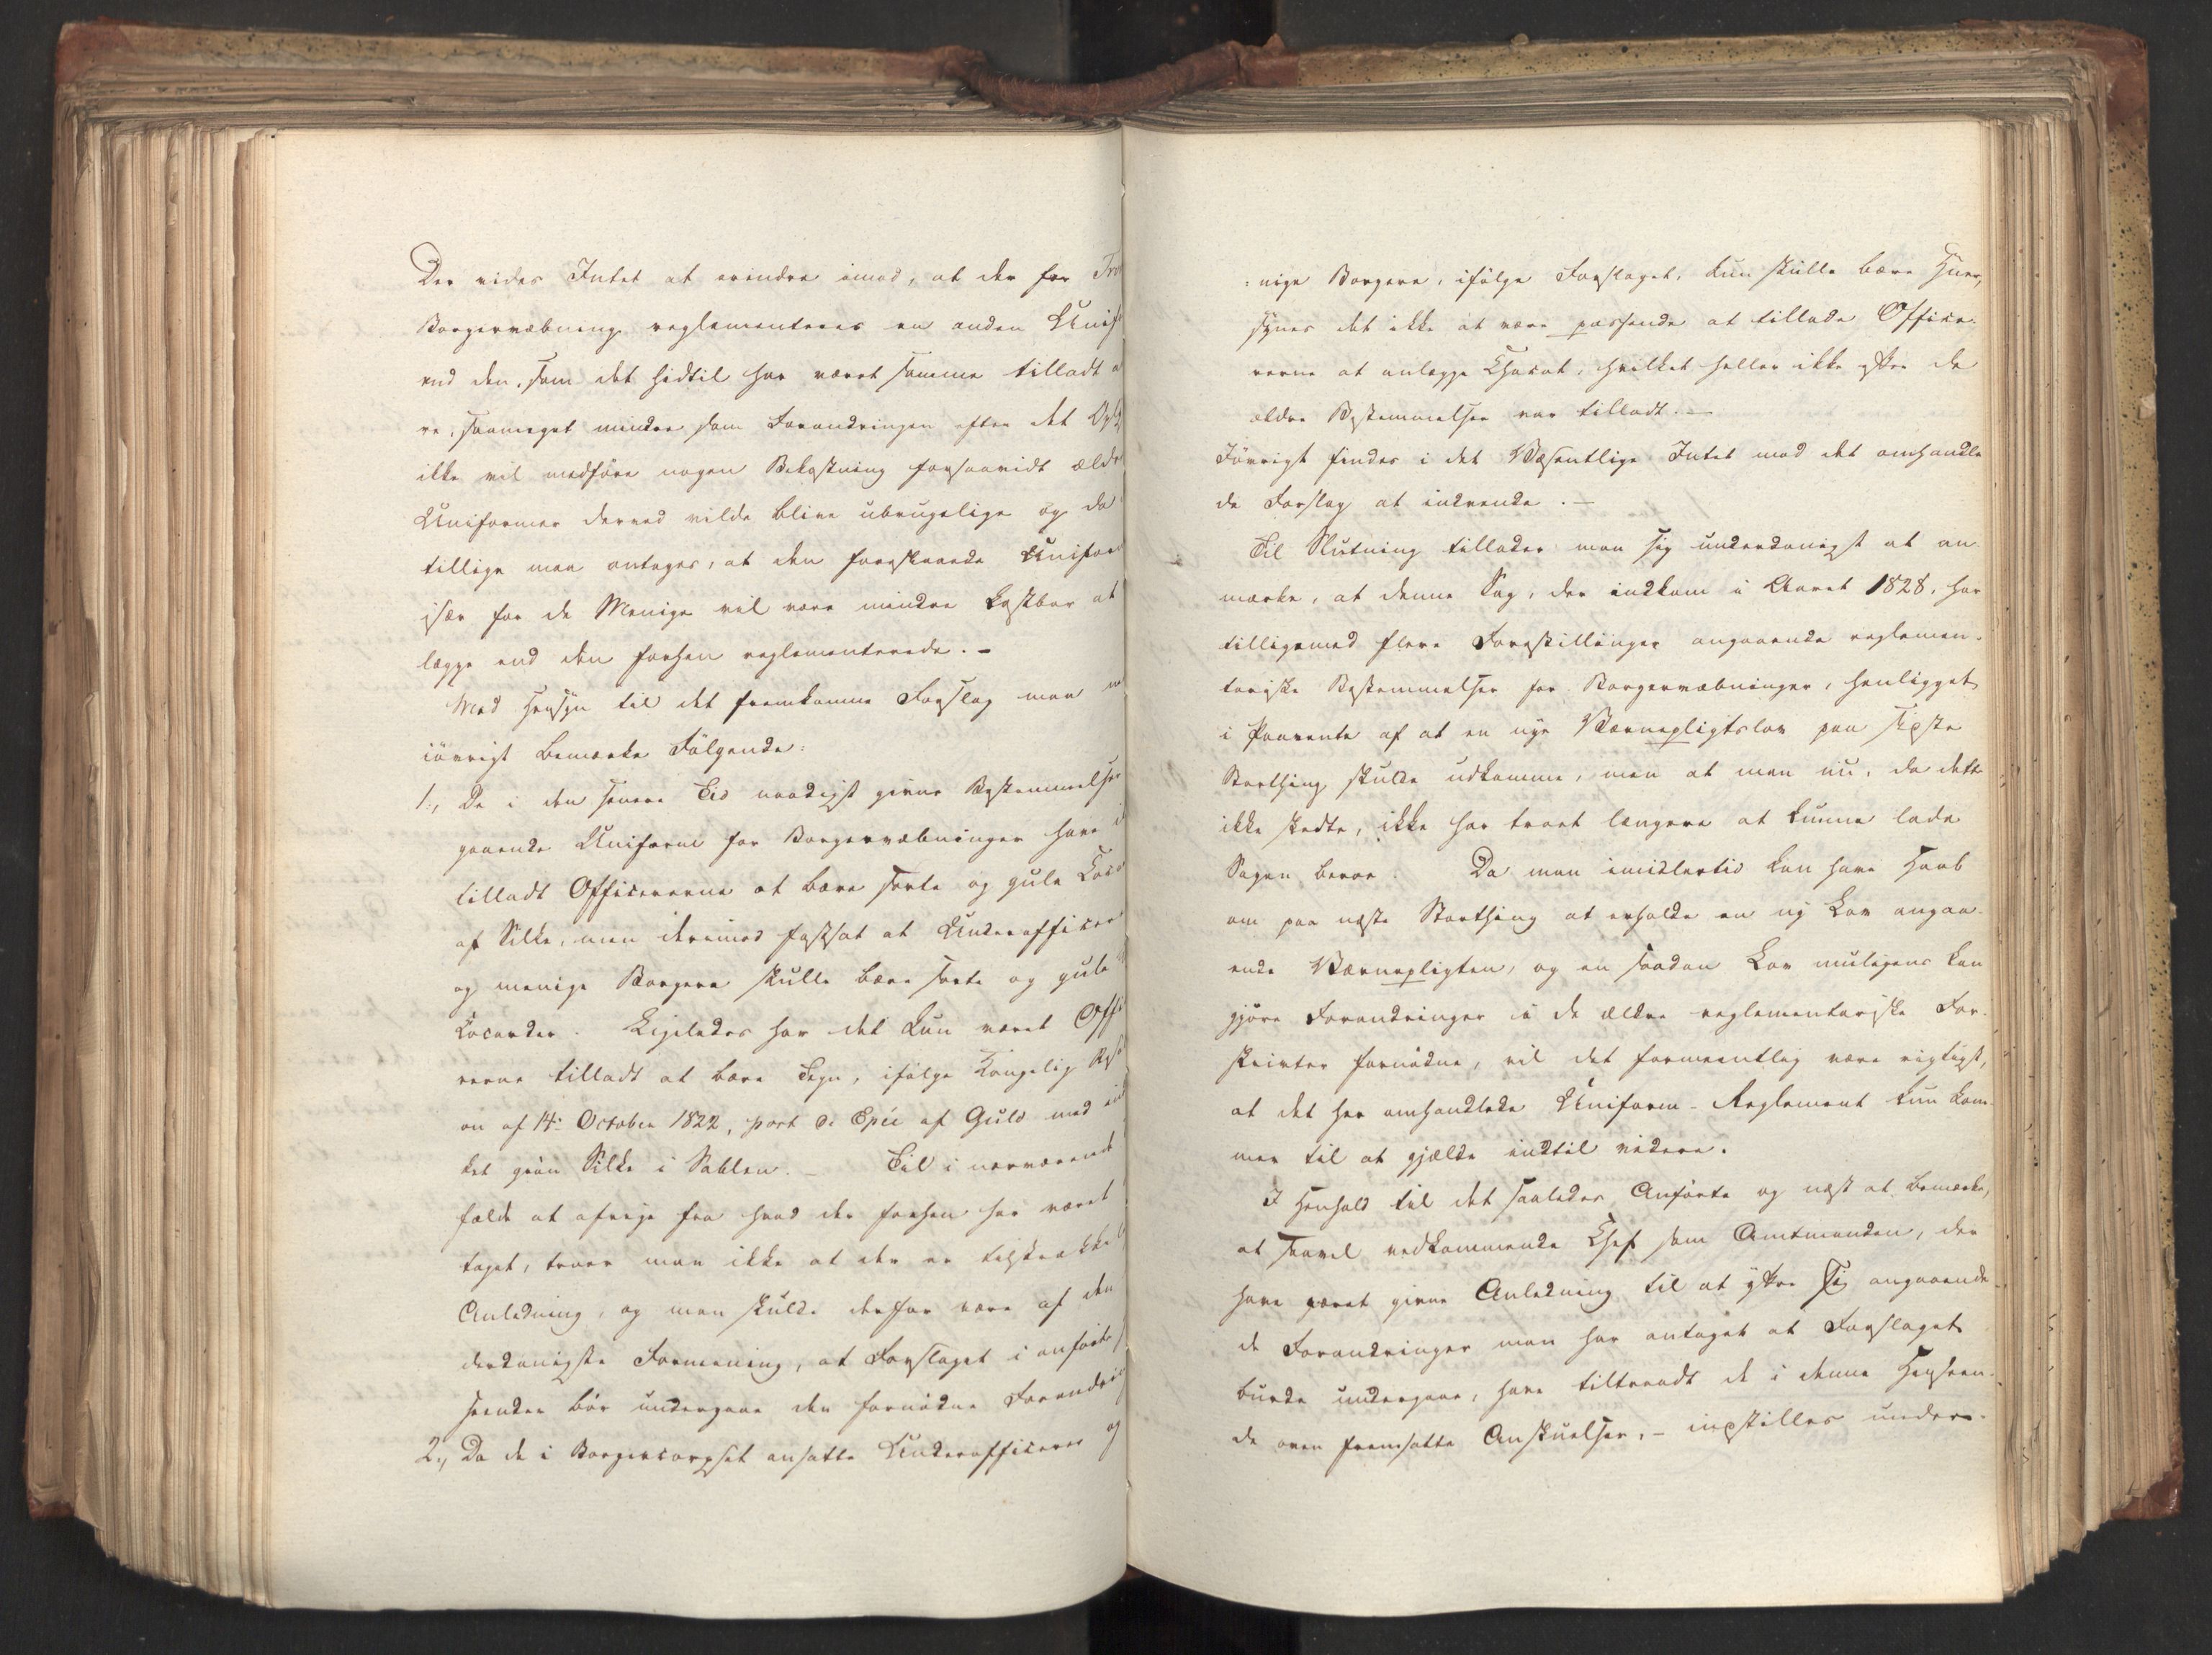 Der vides Intet at erindre imod, at der for Tro
Borgervæbning reglementeres en anden Unif
end den, som det hidtil har været samme tilladt a
re, saameget mindre som Forandringen efter det Opl
ikke vil medføre nogen Bekostning forsaavidt ældr
Uniformer derved vilde blive ubrugelige og da
tillige maa antages, at den foreslaaede Uniform
især for de Menige vil være mindre kostbar at
lægge end den forhen reglementerede. –
Med Hensyn til det fremkomne Forslag maa m
iøvrigt bemærke Følgende:
1., Da i den senere Tid naadigst givne Bestemmelser
gaaende Uniform for Borgervæbninger have
tilladt Officererne at bære sorte og gule Coca
af Silke, men derimod fastsat at Underofficer
og menige Borgere skulle bære sorte og gule
Cocarder. Ligeledes har det kun været Offi
rerne tilladt at bære Tegn, ifølge Kongelig Res
on af 14de October 1822, port de Epée af Guld med
ket grøn Silke i Sablen. – Til i nærværende
fælde at afvige fra hvad der forhen har været
taget, troer man ikke at der er tilstrækkel
Anledning, og man skulde derfor være af den
derdanigste Formening, at Forslaget i anførte
seender bør undergaae den fornødne Forandrin
2., Da de i Borgercorpset ansatte Underofficerer og
: nige Borgere, ifølge Forslaget, kun skulle bære Huer,
synes det ikke at være passende at tillade Office-
rerne at anlægge Chacot, hvilket heller ikke efter de
ældre Bestemmelser var tilladt. –
Iøvrigt findes i det Væsentlige Intet mod det omhandle
de Forslag at indvende. –
Til Slutning tillader man sig underdanigst at an
mærke, at denne Sag, der indkom i Aaret 1828, har
tilligemed flere Forestillinger angaaende reglemen-
tariske Bestemmelser for Borgervæbninger, henligget
i Paavente af at en nye Værnepligtslov paa sidste
Storthing skulde udkomme, men at man nu, da dette
ikke skedte, ikke har troet længere at kunne lade
Sagen beroe. Da man imidlertid kan have Haab
om paa næste Storthing at erholde en ny Lov angaa-
ende Værnepligten, og en saadan Lov muligens kan
gjøre Forandringer i de ældre reglementariske For-
skrivter fornødne, vil det formeentlig være rigtigst,
at det her omhandlede Uniform-Reglement kun kom-
mer til at gjælde indtil videre.
I Henhold til det saaledes Anførte og næst at bemærke,
at saavel vedkommende Chef som Amtmanden, der
have været givne Anledning til at yttre sig angaaende
de Forandringer man har antaget at Forslaget
burde undergaae, have tiltraadt de i denne Henseen-
de oven fremsatte Anskuelser, – indstilles under-